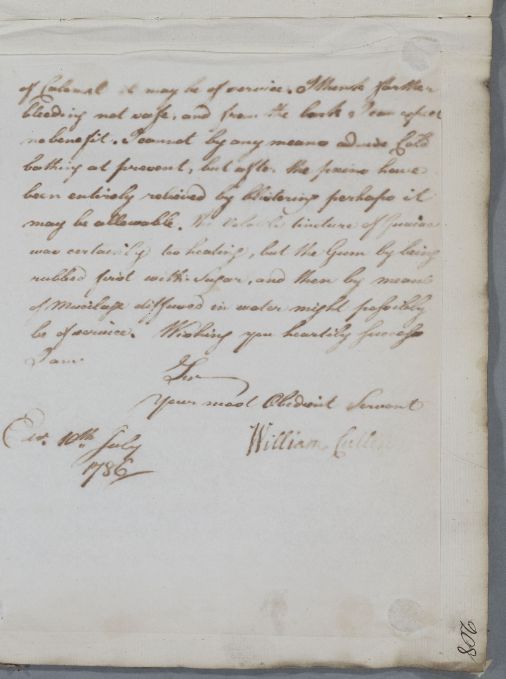 of Calomel it may be of service. I think farther
bleeding not safe, and from the bark I can expect
no benefit. I cannot by any means advise Cold
bathing at present, but after the pains have
been entirely relieved by blistering perhaps it
may be allowable. The Volatile tincture of Guaiac
was certainly too heating, but the Gum by being
rubbed first with Sugar, and then by means
of Mucilage diffused in water might possibly
be of service. Wishing you heartily success
I am
Sir
Your most Obedient Servant
William Cullen
Edr. 10th July
1786
208